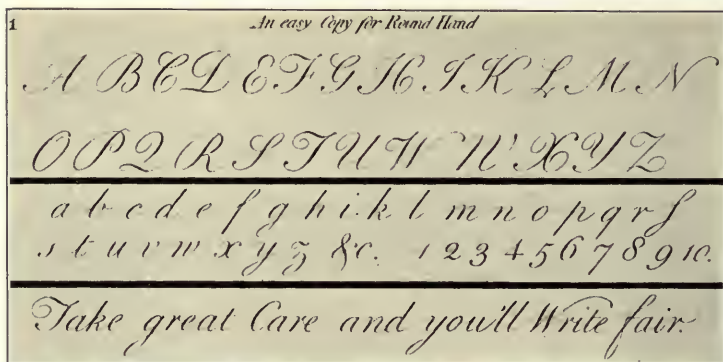 1 An easy Copy for Round Hand
A B C D E F G H I K L M N
O P Q R S T U W W X Y Z
a b c d e f g h i k l m n o p q r ſ
s t u v w x y z &c. 1 2 3 4 5 6 7 8 9 10.
Take great Care and you'll Write fair.